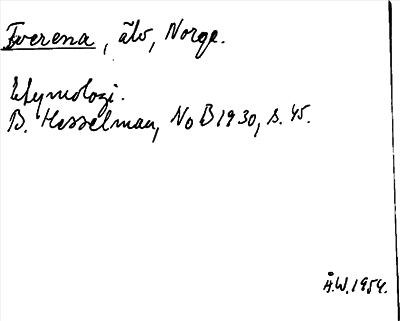 Tverena, älv, Norge.
Etymologi.
B. Hesselman, NoB 1930, s. 45.
Å.W. 1954.